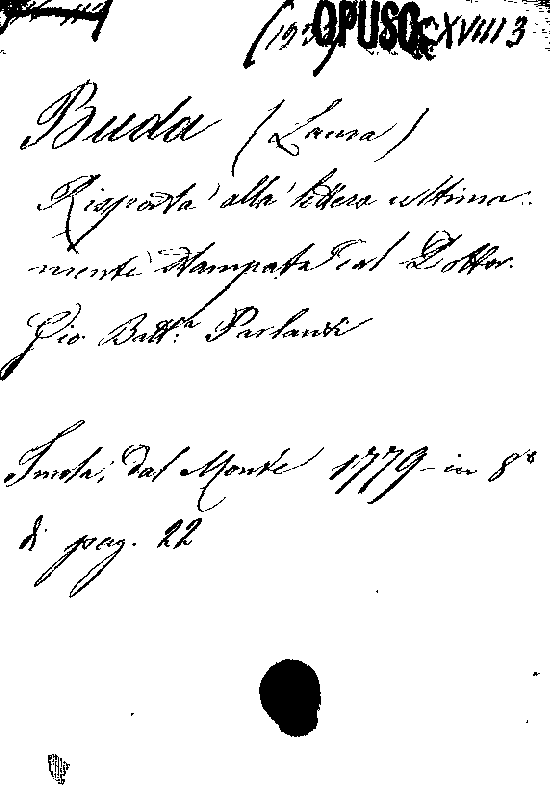 OPUSC. CXVIII 3
Buda (Laura)
Risposta alla lettera ultima-
mente stampata dal Dottor.
Gio. Batt.a Parlanti
Imola, dal Monte 1779 - in 8°
di pag. 22